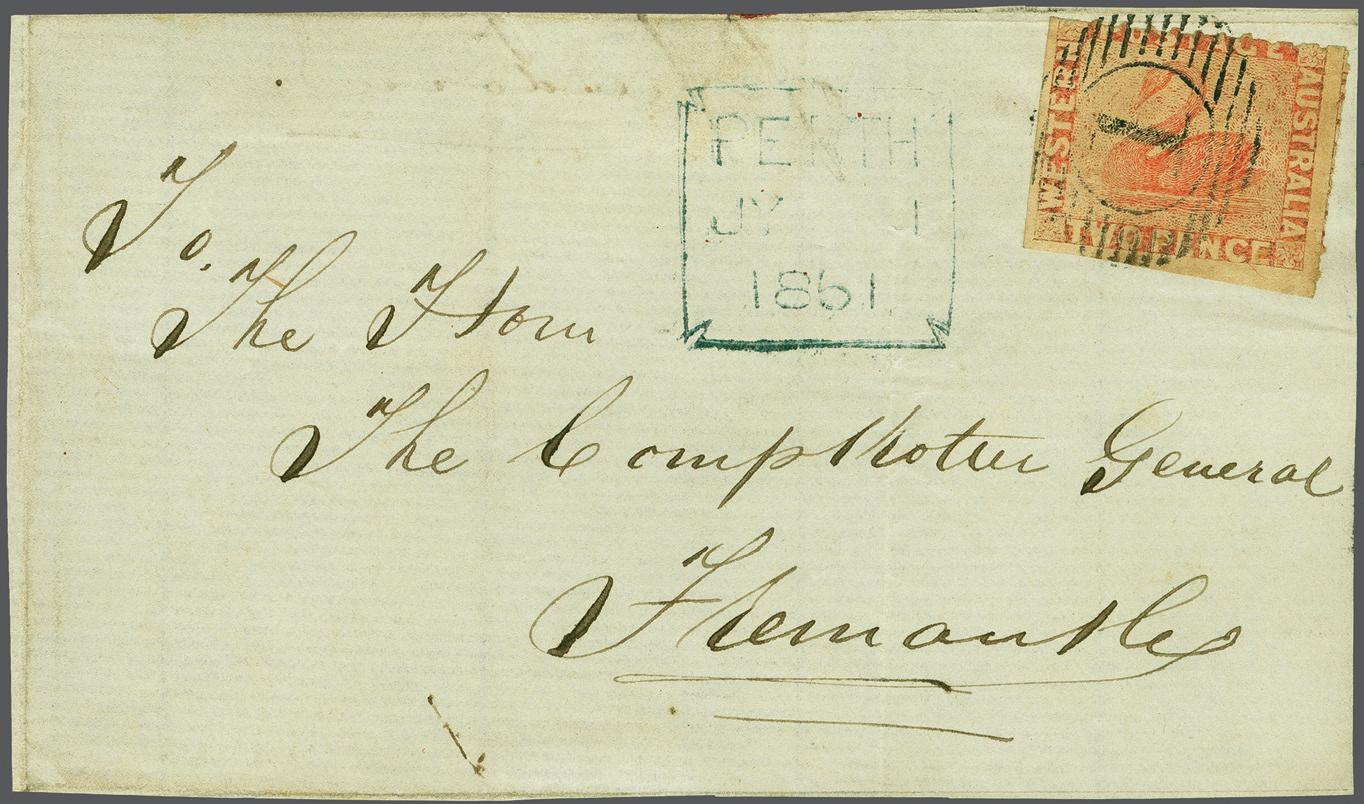 POSTAGE
WESTERN
AUSTRALIA
TWO PENCE
1
PERTH
JY 1
1861
To.
The Hon
The Comptroller General
Fremantle